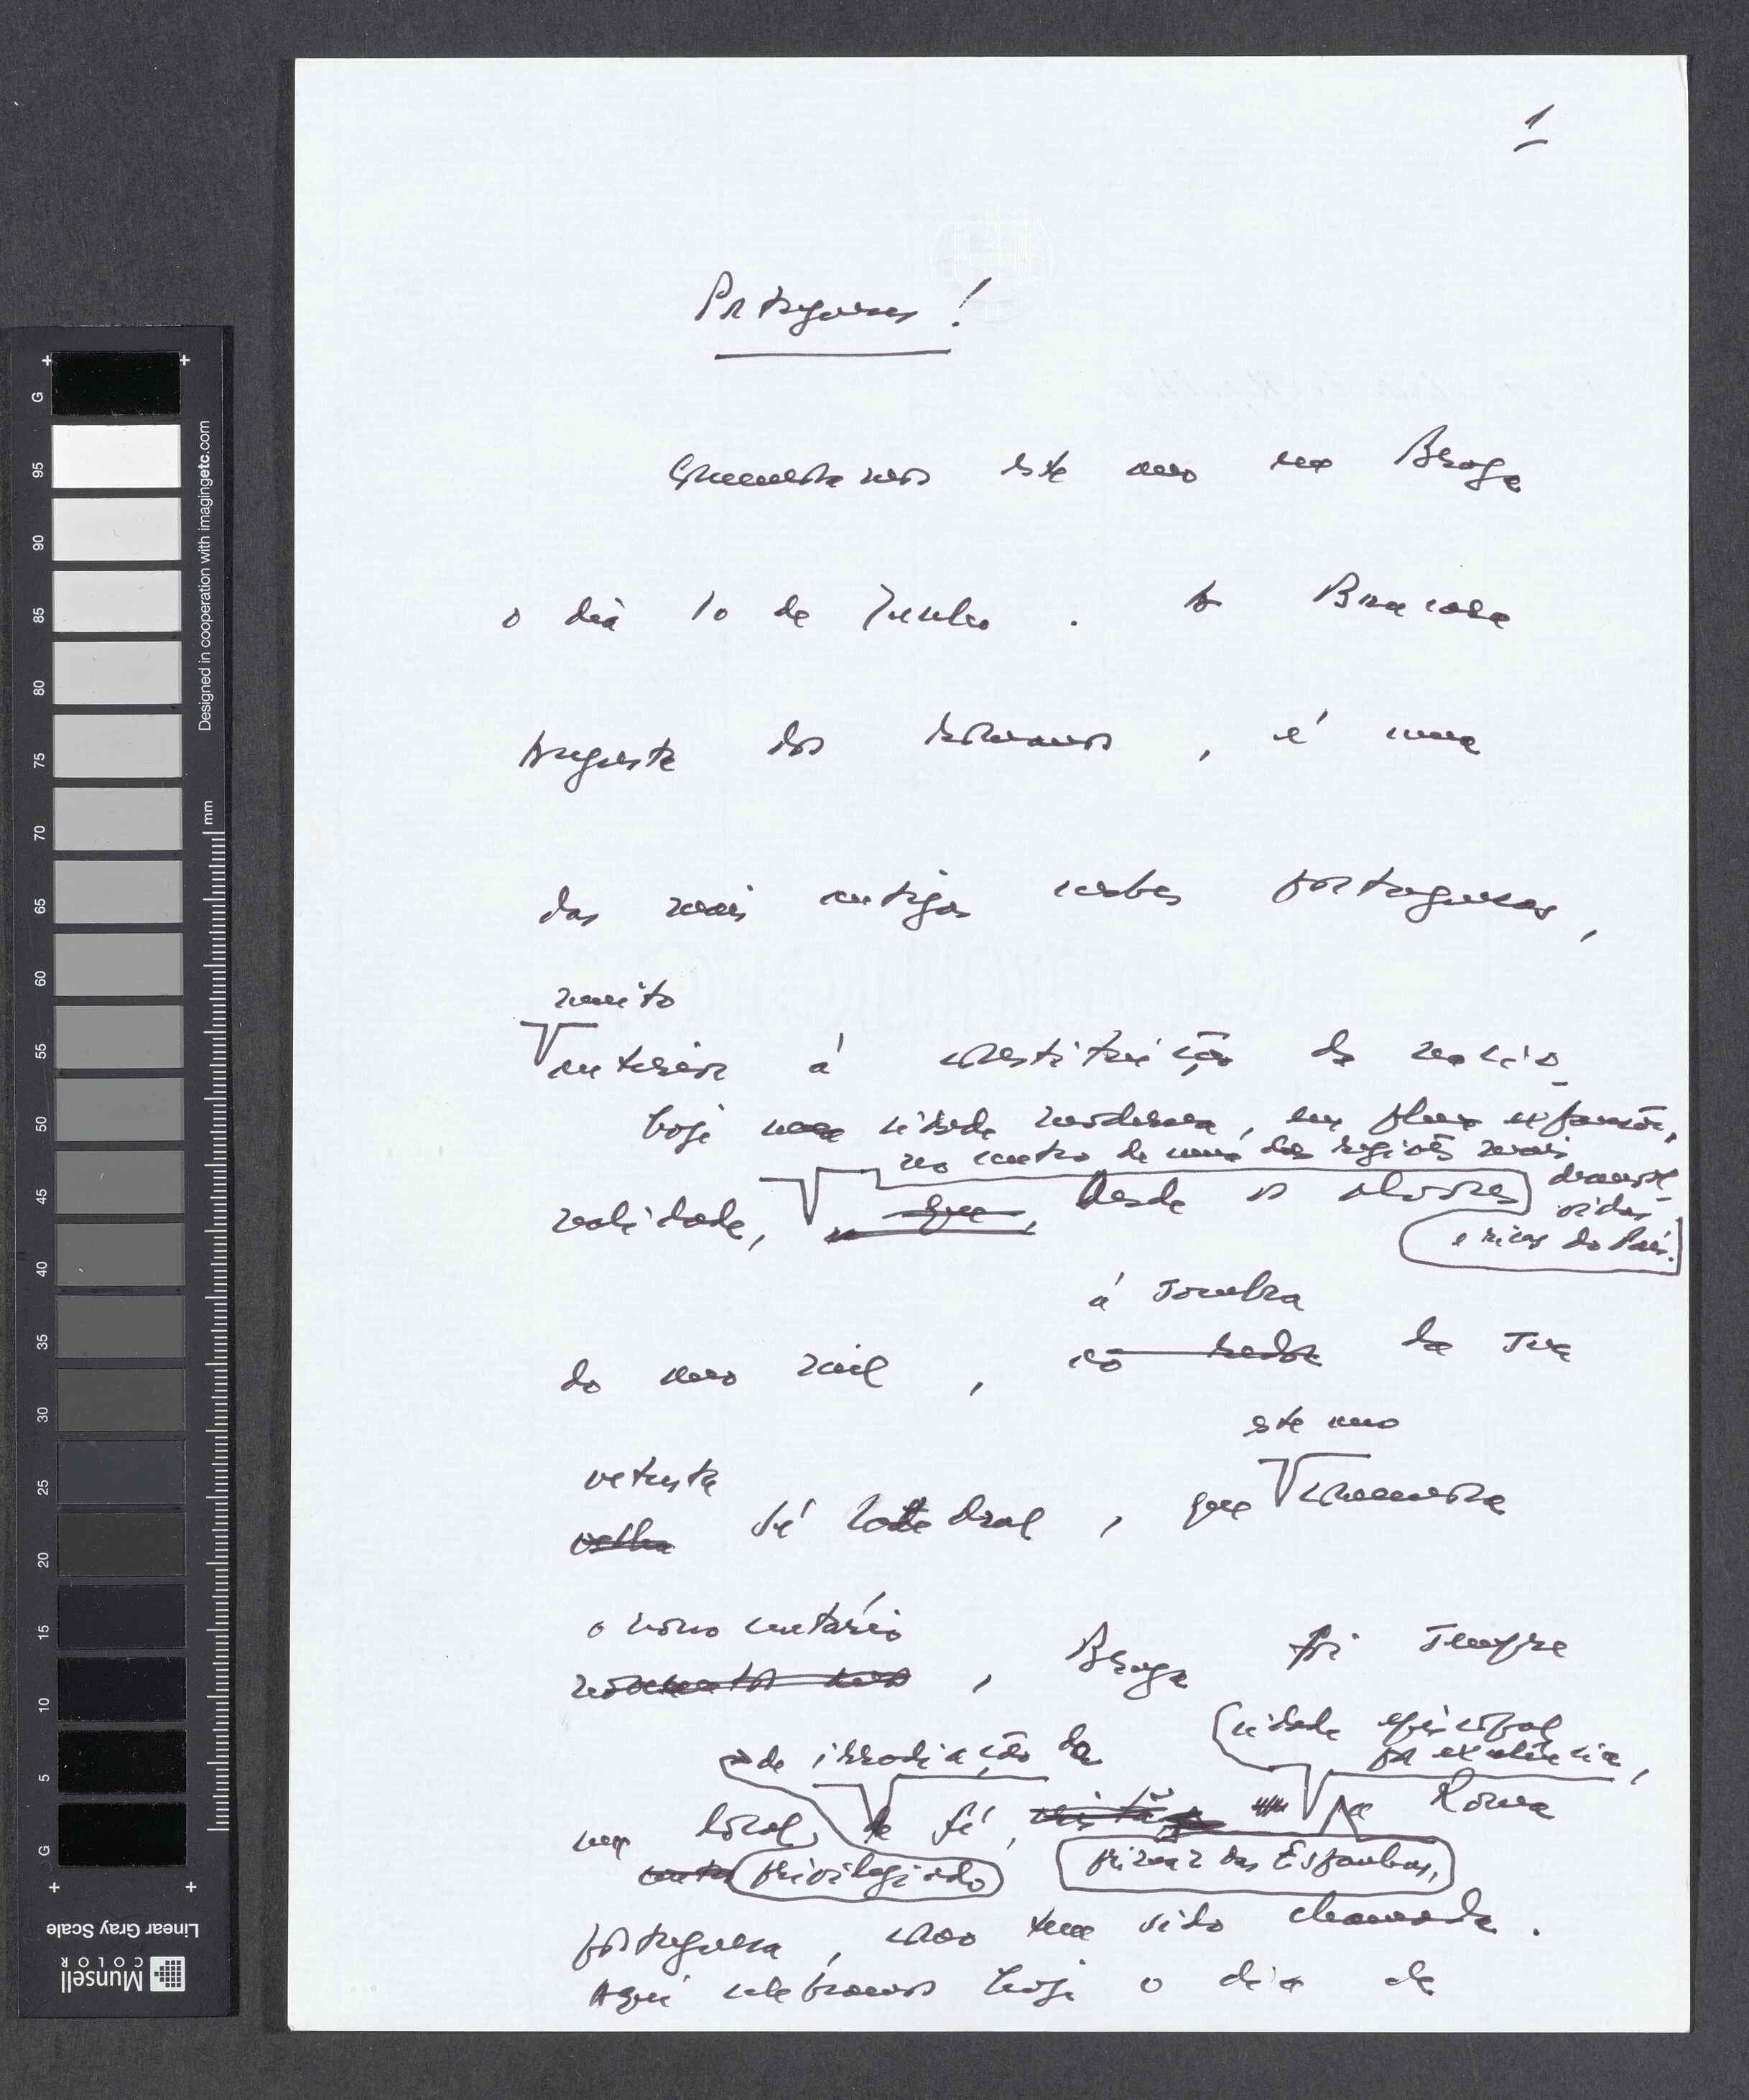 1
Portugueses!
Comemoramos este ano em Braga
o dia 10 de Junho. A Bracara
Augusta dos romanos, é uma
das mais antigas urbes portuguesas,
muito
anterior à constituição da nacio-
hoje uma cidade moderna, em plena expansão,
no centro de uma das regiões mais
desenvol-
vidas
e ricas do País.
nalidade, que, desde os alvores
à sombra
do ano mil, ao redor da sua
este ano
vetusta
velha Sé Catedral, que comemora
o nono centenário
novecentos anos, Braga foi sempre
de irradiação da
cidade episcopal
por excelência,
um local de fé, a Roma
privilegiado
primaz das Espanhas,
portuguesa, como tem sido chamada.
Aqui celebramos hoje o dia de
G
95
90
85
80
75
70
65
60
55
50
45
40
35
30
25
20
15
10
5
G
mm
Designed in cooperation with imagingetc.com
Linear Gray Scale
Munsell
COLOR